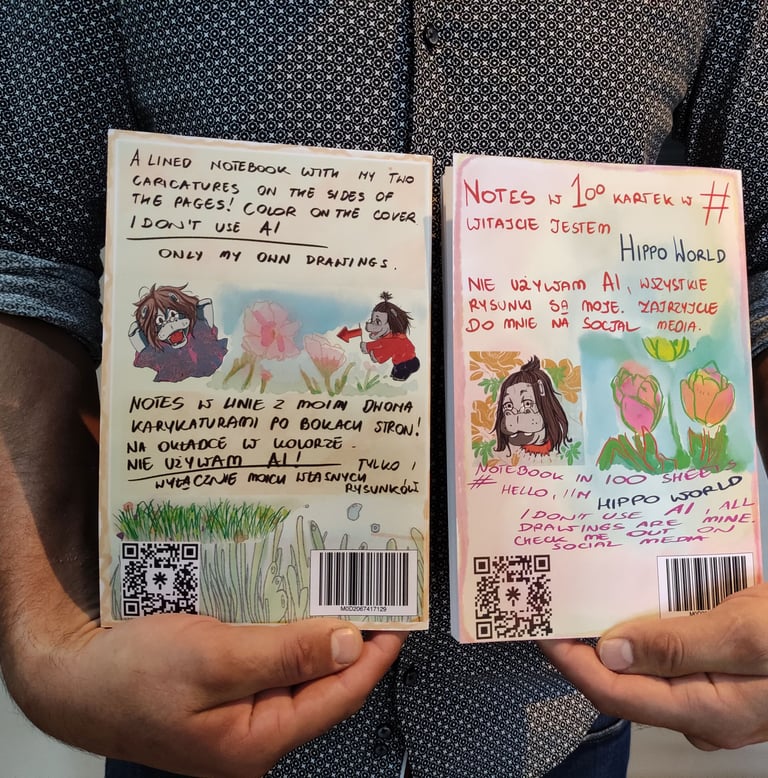 A LINED NOTEBOOK WITH MY TWO
CARICATURES ON THE SIDES OF
THE PAGES! COLOR ON THE COVER.
I DON'T USE AI
ONLY MY OWN DRAWINGS.
NOTES W LINIE Z MOIMI DWOMA
KARYKATURAMI PO BOKACH STRON!
NA OKŁADCE W KOLORZE.
NIE UŻYWAM AI! TYLKO I
WYŁĄCZNIE MOICH WŁASNYCH
RYSUNKÓW
M0D2067417129
NOTES W 100 KARTEK W #
WITAJCIE JESTEM
HIPPO WORLD
NIE UŻYWAM AI, WSZYSTKIE
RYSUNKI SĄ MOJE. ZAJRZYJCIE
DO MNIE NA SOCJAL MEDIA.
NOTEBOOK IN 100 SHEETS
# HELLO, I'M HIPPO WORLD
I DON'T USE AI, ALL
DRAWINGS ARE MINE.
CHECK ME OUT ON
SOCIAL MEDIA